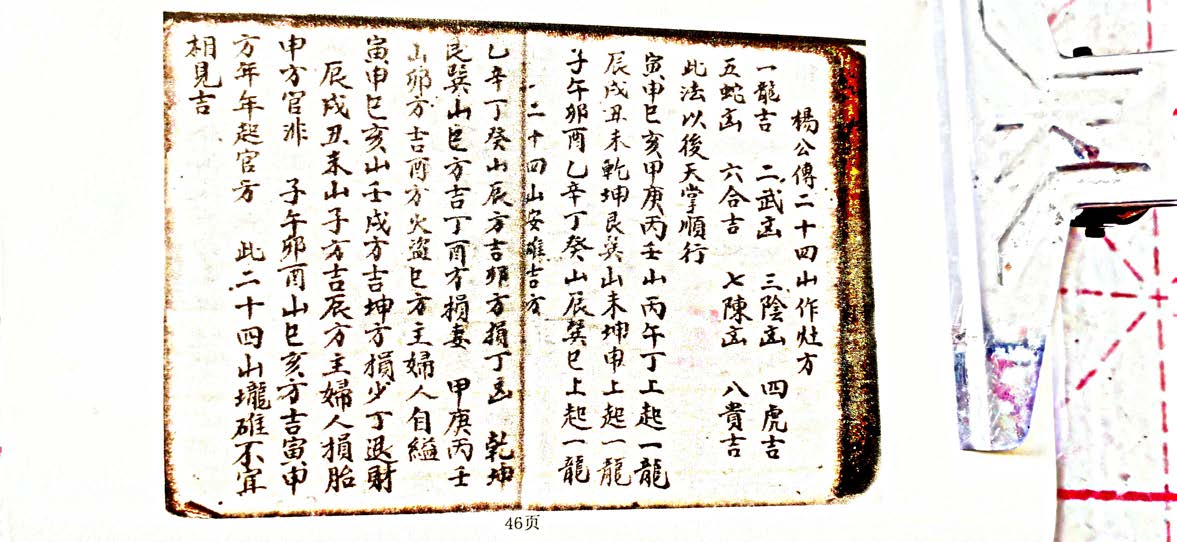 楊公傳二十四山作灶方
一龍吉 二武凶 三陰凶 四虎吉
五蛇凶 六合吉 七陳凶 八貴吉
此法以後天掌順行
寅申巳亥甲庚丙壬山丙午丁上起一龍
辰戌丑未乾坤艮巽山未坤申上起一龍
子午卯酉乙辛丁癸山辰巽巳上起一龍
二十四山安碓吉方
乙辛丁癸山辰方吉卯方損丁凶 乾坤
艮巽山巳方吉丁酉方損妻 甲庚丙壬
山卯方吉酉方火盜巳方主婦人自縊
寅申巳亥山壬戌方吉坤方損少丁退財
辰戌丑未山子方吉辰方主婦人損胎
申方官非 子午卯酉山巳亥方吉寅申
方年年起官方 此二十四山壠碓不宜
相見吉
46页